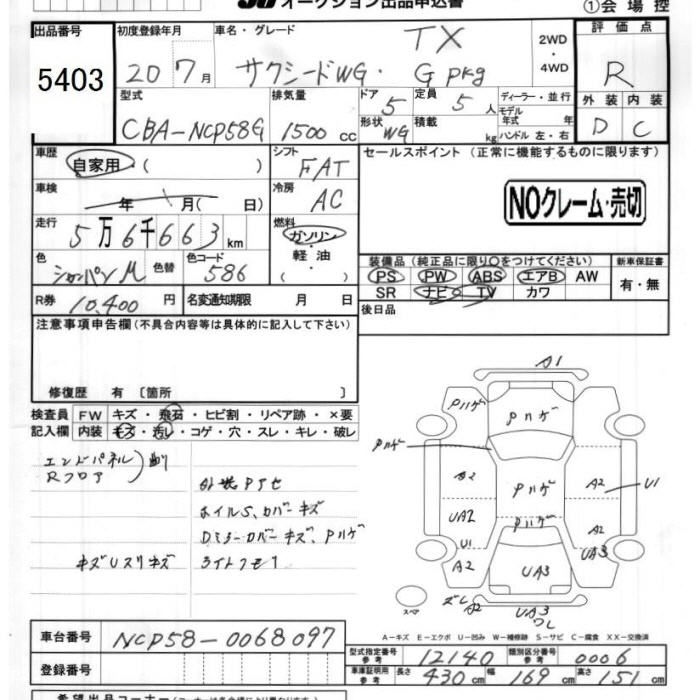 オークション出品申込書
①会場控
出品番号 5403
初度登録年月 20 7月
車名・グレード TX
サクシードWG・GPkg
2WD・4WD
評価点 R
外装 内装
D C
型式 CBA-NCP58G
排気量 1500 cc
ドア 5
形状 WG
定員 5人
積載 kg
ディーラー・並行
モデル年式 年
ハンドル 左・右
車歴 自家用・( )
シフト FAT
車検 年 月( 日)
冷房 AC
走行 5万6千663km
燃料 ガソリン・軽油・( )
色 シャンパンM
色替
色コード 586
R券 10,400円
名変通知期限 月 日
セールスポイント (正常に機能するものに限ります)
NOクレーム・売切
装備品 (純正品に限り○をつけてください)
PS PW ABS エアB AW
SR ナビ TV カワ
新車保証書 有・無
後日品
注意事項申告欄(不具合内容等は具体的に記入して下さい)
修復歴 有 〔箇所
検査員記入欄
FW キズ・飛石・ヒビ割・リペア跡・×要
内装 キズ・汚レ・コゲ・穴・スレ・キレ・破レ
エンドパネル
Rフロア
キズUスリキズ
ホイルS、カバーキズ
Dミラーカバーキズ、Pハゲ
A1
Pハゲ
Pハゲ
Pハゲ
A2
Pハゲ
A2
U1
UA2
Pハゲ
A2
U1
UA3
A2
UA3
スペア
ズレ
A2
UA3
ワレ
A-キズ E-エクボ U-凹み W-補修跡 S-サビ C-腐食 XX-交換済
車台番号 NCP58-0068097
登録番号
型式指定番号 参考 12140
類別区分番号 参考 0006
車庫証明用 参考 長さ 430cm 幅 169cm 高さ 151cm
希望出品コーナー